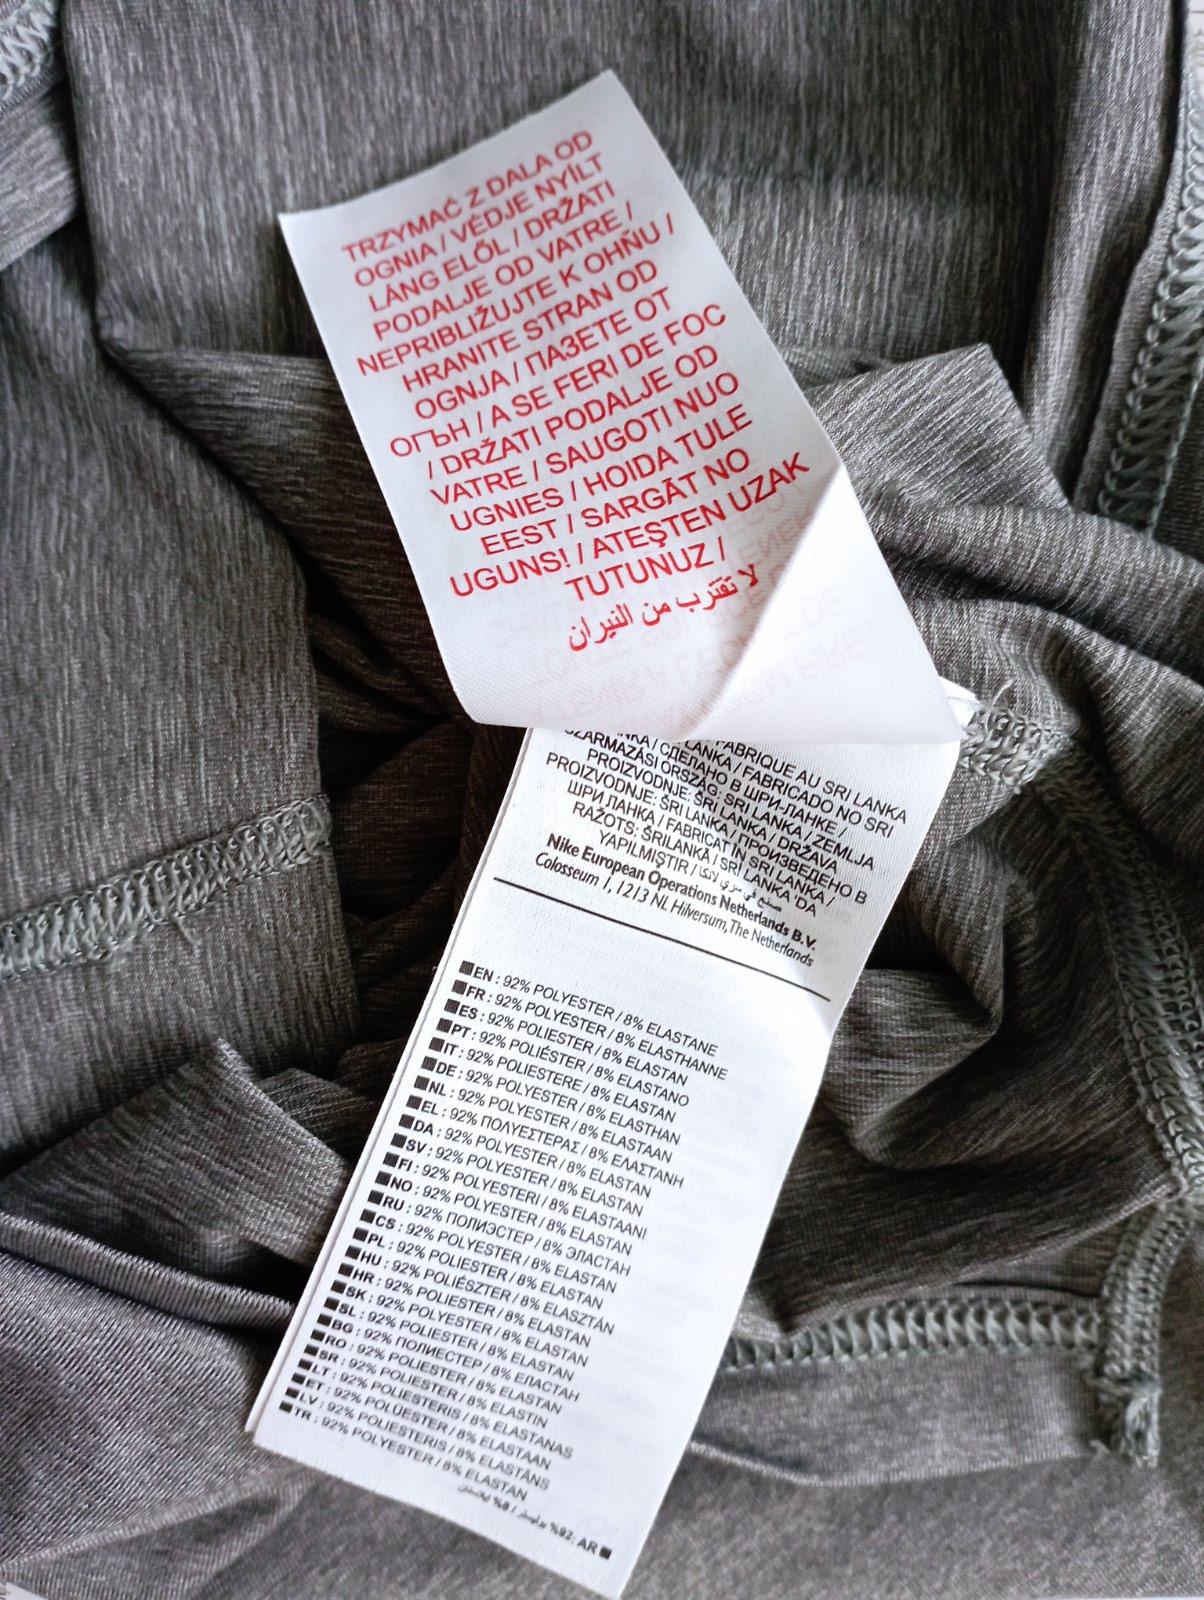 TRZYMAĆ Z DALA OD
OGNIA / VÉDJE NYÍLT
LÁNG ELŐL / DRŽATI
PODALJE OD VATRE /
NEPRIBLIŽUJTE K OHŇU /
HRANITE STRAN OD
OGNJA / ПАЗЕТЕ ОТ
ОГЪН / A SE FERI DE FOC
/ DRŽATI PODALJE OD
VATRE / SAUGOTI NUO
UGNIES / HOIDA TULE
EEST / SARGĀT NO
UGUNS! / ATEŞTEN UZAK
TUTUNUZ /
لا تقترب من النيران
FABRIQUE AU SRI LANKA
LANKA / FABRICADO NO SRI
LANKA / СДЕЛАНО В ШРИ-ЛАНКЕ /
SZÁRMAZÁSI ORSZÁG: SRI LANKA / ZEMLJA
PROIZVODNJE: ŠRI LANKA / DRŽAVA
PROIZVODNJE: ŠRI LANKA / ПРОИЗВЕДЕНО В
ШРИ ЛАНКА / FABRICAT IN SRI LANKA /
RAŽOTS: ŠRILANKA / SRI LANKA 'DA
YAPILMIŞTIR / صنع في سري لانكا
Nike European Operations Netherlands B.V.
Colosseum 1, 1213 NL Hilversum, The Netherlands
EN : 92% POLYESTER / 8% ELASTANE
FR : 92% POLYESTER / 8% ELASTHANNE
ES : 92% POLIÉSTER / 8% ELASTAN
PT : 92% POLIÉSTER / 8% ELASTANO
IT : 92% POLIESTERE / 8% ELASTAN
DE : 92% POLYESTER / 8% ELASTHAN
NL : 92% POLYESTER / 8% ELASTAAN
EL : 92% ΠΟΛΥΕΣΤΕΡΑΣ / 8% ΕΛΑΣΤΑΝΗ
DA : 92% POLYESTER / 8% ELASTAN
SV : 92% POLYESTER / 8% ELASTAN
FI : 92% POLYESTERI / 8% ELASTAANI
NO : 92% POLYESTER / 8% ELASTAN
RU : 92% ПОЛИЭСТЕР / 8% ЭЛАСТАН
CS : 92% POLYESTER / 8% ELASTAN
PL : 92% POLIESTER / 8% ELASTAN
HU : 92% POLIÉSZTER / 8% ELASZTÁN
HR : 92% POLIESTER / 8% ELASTAN
SK : 92% POLYESTER / 8% ELASTAN
SL : 92% POLIESTER / 8% ELASTAN
BG : 92% ПОЛИЕСТЕР / 8% ЕЛАСТАН
RO : 92% POLIESTER / 8% ELASTAN
SR : 92% POLIESTER / 8% ELASTIN
LT : 92% POLIESTERIS / 8% ELASTANAS
ET : 92% POLÜESTER / 8% ELASTAAN
LV : 92% POLIESTERIS / 8% ELASTĀNS
TR : 92% POLYESTER / 8% ELASTAN
AR :92% بوليستر / 8% إيلاستان